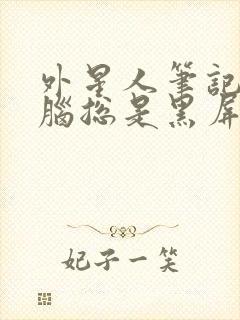 外星人筆記
腦總是黑屏
妃子一笑